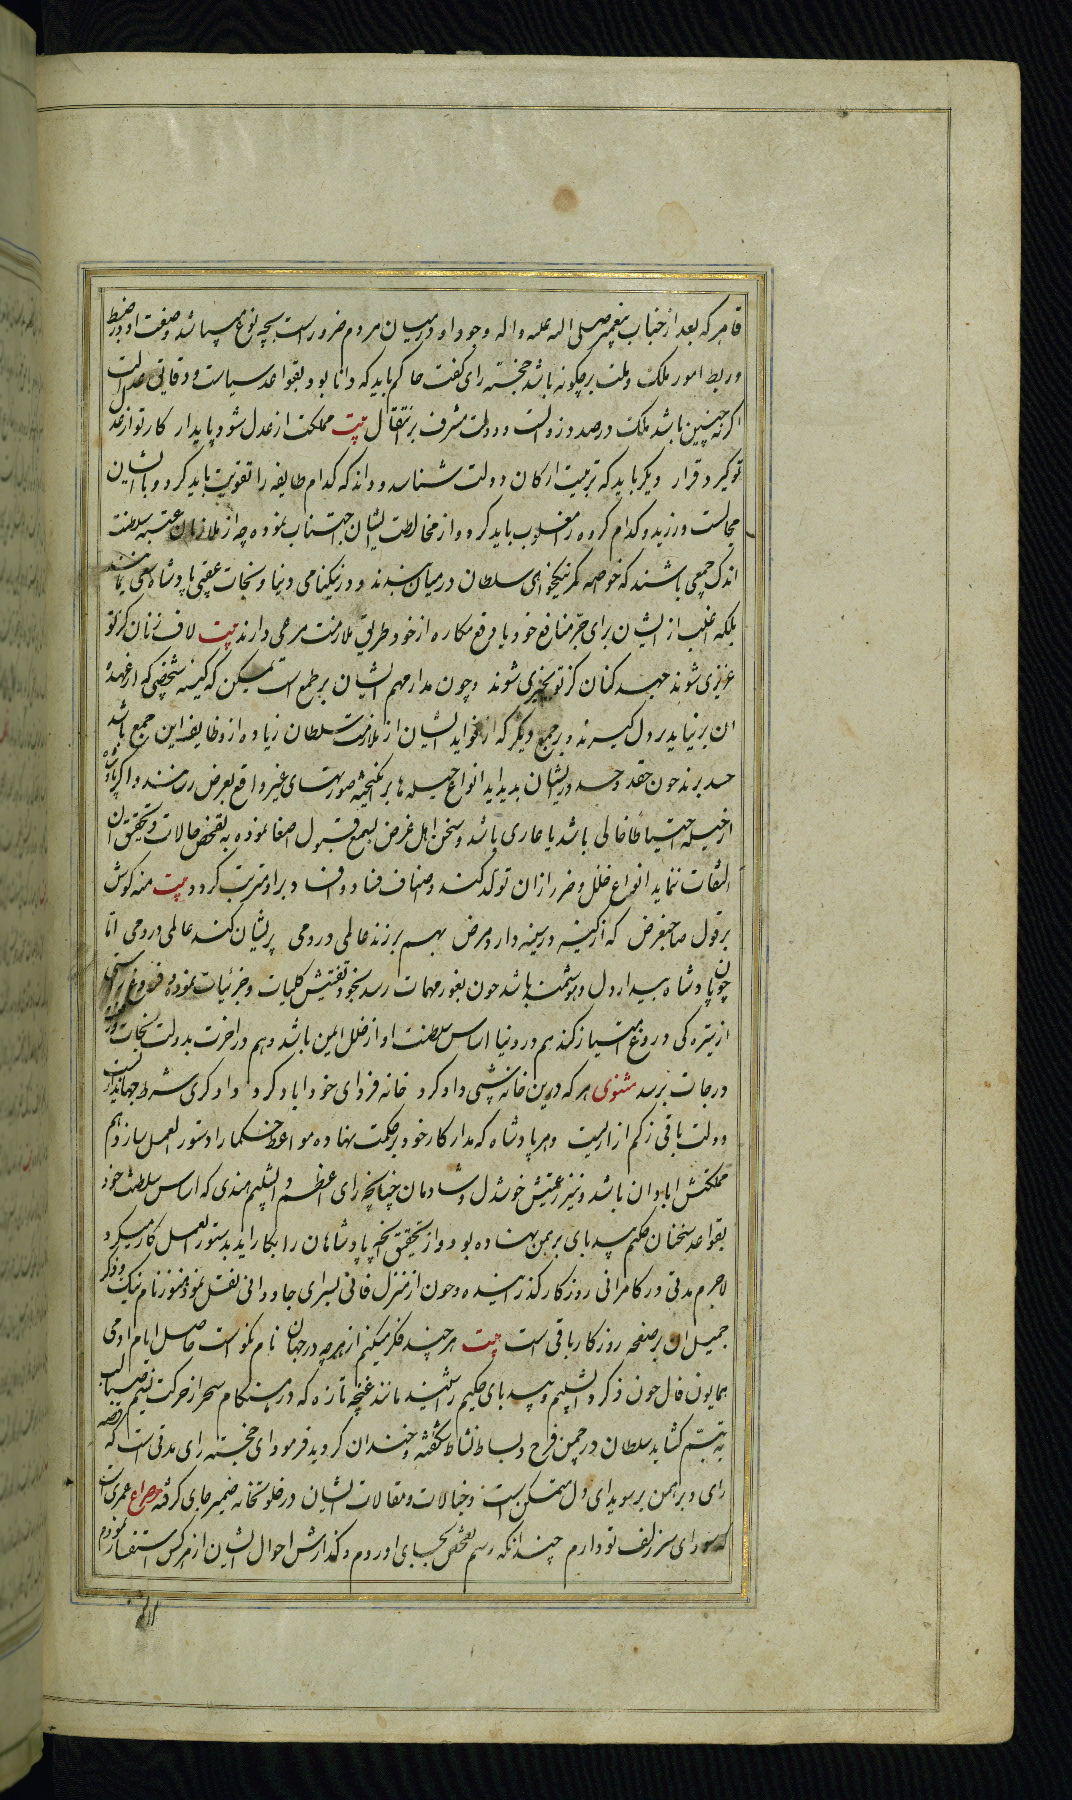 قاهر که بعد از جناب پیغمبر صلی الله علیه واله وجود او در میان مردم ضرور است بچه نوع میباشد و صفت او در ضبط
و ربط امور ملک و ملت برچگونه باشد خجسته رای گفت حاکم باید که دانا بود بقواعد سیاست و دقایق عدالت
اگر نه چنین باشد ملک در صدد زوالست و دولت مشرف بر انتقال بیت مملکت از عدل شود پایدار کار تو از عدل
تو گیرد قرار دیگر باید که تربیت ارکان دولت شناسد و داند که کدام طایفه را تقویت باید کرد و با ایشان
مجالست ورزید و کدام گروه را مغلوب باید کرد و از مخالطت ایشان اجتناب نموده چه از ملازمان عتبه سلطنت
اندک جمعی باشند که خواهد کمر نیکخواهی سلطان در میان بندند و در نیکنامی دنیا و نجات عقبی پادشاه سعی نمایند
بلکه اغلب از ایشان برای جر منافع خود یا دفع مکاره از خود طریق ملازمت مرعی دارند بیت لاف زنان کز تو
عزیزی شوند جهد کنان کز تو بچیزی شوند و چون مدار مهم ایشان بر طمع است یمکن که کینه شخصی که از عهده
ان بر نیاید بر دل گیرند و بر جمع دیگر که از فواید ایشان از ملازمت سلطان زیاده از وظایف این جمع باشد
حسد برند چون حقد و حسد در ایشان بدید اید انواع حیله ها بر انگیخته صورتهای غیر واقع بعرض رسانند و اگر پادشاه
از حیله احتیاط خالی باشد یا عاری باشد و سخن اهل غرض بسمع قبول اصغا نموده به تفحص حالات و تحقیق ان
التفات ننماید انواع خلل و ضرر از ان تولد کند و اصناف فتنه و فساد بر او مترتب گردد بیت منه گوش
بر قول صاحبغرض که از کینه در سینه دارد مرض بهم بر زند عالمی در دمی پریشان کند عالمی در دمی اما
چون پادشاه بیدار دل و هوشمند باشد چون بغور مهمات رسد بخود تفتیش کلیات و جزئیات نموده فروغ راستی
از تیره کی دروغ امتیاز کند هم در دنیا اساس سلطنت او از خلل ایمن باشد و هم در اخرت بدولت نجات و
درجات برسد مثنوی هر که درین خانه شبی داد کرد خانه فردای خود اباد کرد داد گری شرط جهانداریست
دولت باقی ز کم ازاریست و هر پادشاه که مدار کار خود بر حکمت نهاده مواعظ حکما را دستور العمل سازد هم
مملکتش ابادان باشد و نیز رعیتش خوشدل و شادمان چنانچه رای اعظم دابشلیم هندی که اساس سلطنت خود
بقواعد سخنان حکیم بیدپای برهمن نهاده بود و از تحقیق انچه پادشاهان را بکار اید بدستور العمل کار میکرد
لاجرم مدتی در کامرانی روزگار گذرانیده و چون از منزل فانی بسرای جاودانی نقل نمود هنوز نام نیک و ذکر
جمیل او بر صفحه روزگار باقی است بیت هر چند فکر میکنم از هر چه در جهان نام نکو است حاصل ایام ادمی
همایون فال چون ذکر دابشلیم و بیدپای حکیم شنید مانند غنچه تازه که در هنگام سحر از حرکت نسیم صبا لب
به تبسم گشاید سلطان در چمن فرح و بساط نشاط شگفته و خندان گردید فرمود ای خجسته رای مدتی است که قصه
رای و برهمن بر سویدای دل متمکن است و خیالات و مقالات ایشان در خلوتخانه ضمیر جای گرفته مصراع عمری است
که سودای سر زلف تو دارم چندانکه رسم تفحص بجای اوردم و گذارش احوال ایشان از هر کس استفسار نمودم